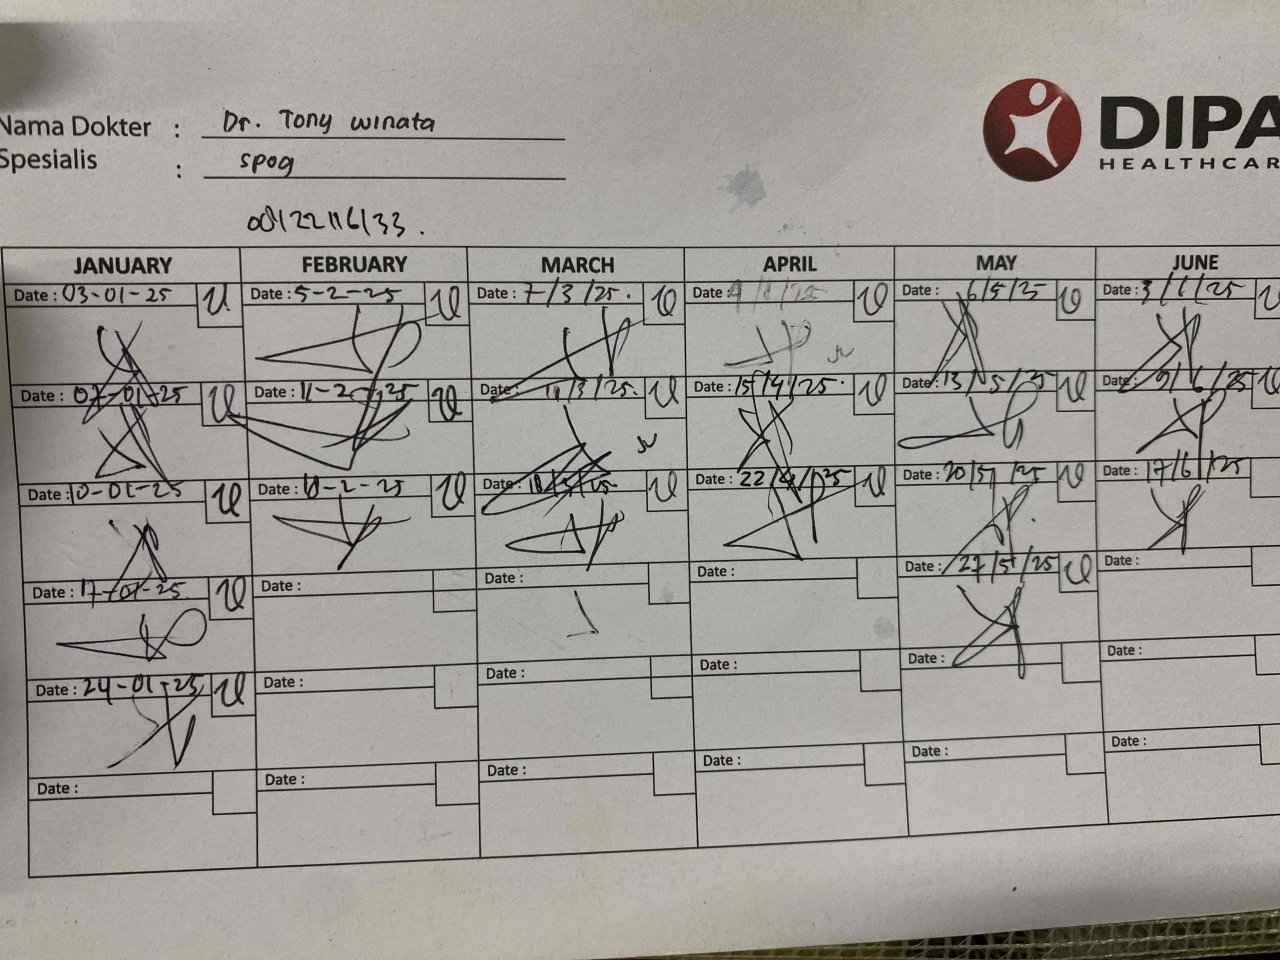 Nama Dokter : Dr. Tony winata
Spesialis : spog
DIPA
HEALTHCAR
JANUARY FEBRUARY MARCH APRIL MAY JUNE
Date : 03-01-25 Date : 5-2-25 Date : 7/3/25. Date : Date : 6/5/25 Date : 3/6/25
Date : 07-01-25 Date : 11-2-25 Date : 11/3/25. Date : 15/4/25. Date : 13/5/25 Date : 9/6/25
Date : 10-01-25 Date : 18-2-25 Date : 18/3/25. Date : 22/4/25 Date : 20/5/25 Date : 17/6/25
Date : 17-01-25 Date : Date : Date : Date : 27/5/25 Date :
Date : 24-01-25 Date : Date : Date : Date : Date :
Date : Date : Date : Date : Date : Date :